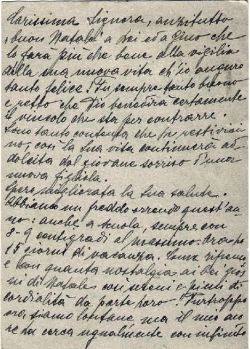 Carissima Signora, anzitutto,
buon Natale! a Lei ed a Gino che
lo farà più che bene alla vigilia
della sua nuova vita ch'io auguro
tanto felice! Fu sempre tanto buono
e retto che Dio benedirà certamente
il vincolo che sta per contrarre.
Sono tanto contenta che
con la sua vita continuerà ad
dolcita dal giovane sorriso d'una
nuova figliola.
migliorata la sua salute.
Abbiamo un freddo orrendo quest'an
no: anche a scuola, sempre con
8-9 centigradi al massimo.
15 giorni di vacanza. Come ripenso
e con quanta nostalgia ai bei gior
ni di Natale con sereni e pieni di
cordialità da parte loro. Purtroppo
ora siamo lontane ma il mio
re La cerca ugualmente con infinito